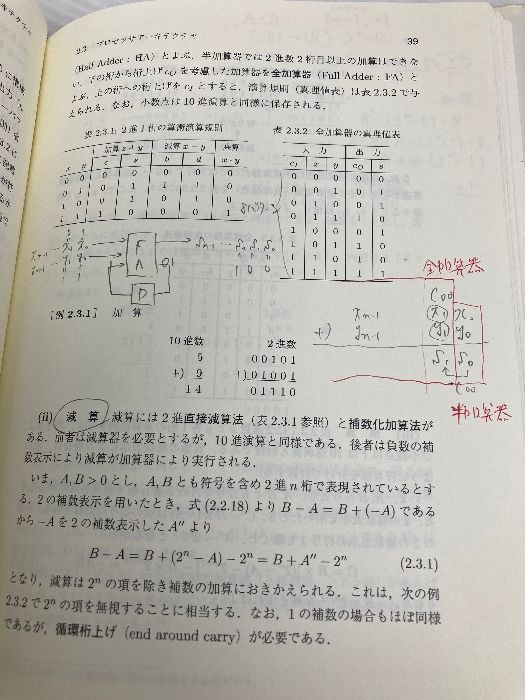 2.3 プロセッサアーキテクチャ 39
(Half Adder : HA) とよぶ．半加算器では 2 進数 2 桁目以上の加算はできな
い．下の桁から桁上げ を考慮した加算器を全加算器 (Full Adder : FA) と
よぶ．上の桁への桁上げを とすると，演算規則 (真理値表) は表 2.3.2 で与
えられる．なお，小数点は 10 進演算と同様に保存される．
表 2.3.1: 2 進 1 桁の算術演算規則
表 2.3.2: 全加算器の真理値表
加算 x + y 減算 x − y 乗算
x y c s b d x · y
0 0 0 0 0 0 0
0 1 0 1 1 1 0
1 0 0 1 0 1 0
1 1 1 0 0 0 1
入 力 出 力
c₁ x y c₀ s
0 0 0 0 0
0 0 1 0 1
0 1 0 0 1
0 1 1 1 0
1 0 0 0 1
1 0 1 1 0
1 1 0 1 0
1 1 1 1 1
8パターン
F
A
D
1 0 0
全加算器
C₀₀
xn-1 (x₁) x₀
+) yn-1 (y₁) y₀
S₁ S₀
C₀₀
半加算器
[例 2.3.1] 加 算
10 進数 2 進数
5 00101
+) 9 +) 01001
14 01110
(ii) 減 算 減算には 2 進直接減算法 (表 2.3.1 参照) と補数化加算法が
ある．前者は減算器を必要とするが，10 進演算と同様である．後者は負数の補
数表示により減算が加算器により実行される．
いま，A, B > 0 とし，A, B とも符号を含め 2 進 n 桁で表現されているとす
る．2 の補数表示を用いたとき，式 (2.2.18) より B − A = B + (−A) である
から −A を 2 の補数表示した A″ より
B − A = B + (2ⁿ − A) − 2ⁿ = B + A″ − 2ⁿ (2.3.1)
となり，減算は 2ⁿ の項を除き補数の加算におきかえられる．これは，次の例
2.3.2 で 2ⁿ の項を無視することに相当する．なお，1 の補数の場合もほぼ同様
であるが，循環桁上げ (end around carry) が必要である．